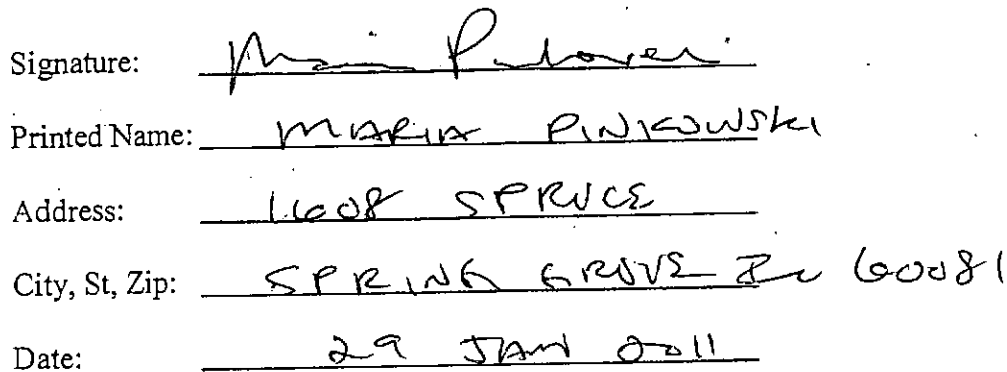 Signature: Maria Pinkowski
Printed Name: MARIA PINKOWSKI
Address: 1608 SPRUCE
City, St, Zip: SPRING GROVE IL 60081
Date: 29 JAN 2011